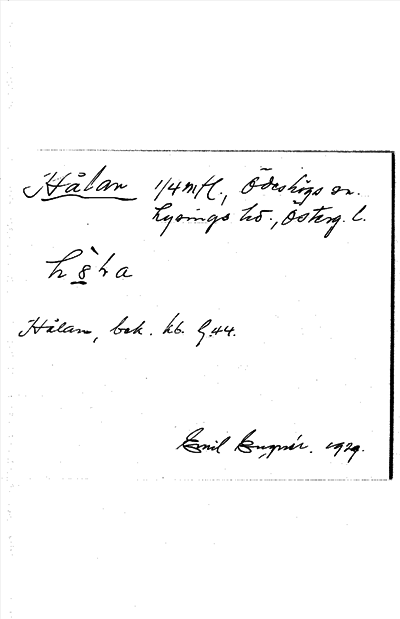 Hålan 1/4 mtl., Ödeshögs sn.
Lysings hd., Österg. l.
Hålan, bek. kb. 9:44.
Emil 1929.